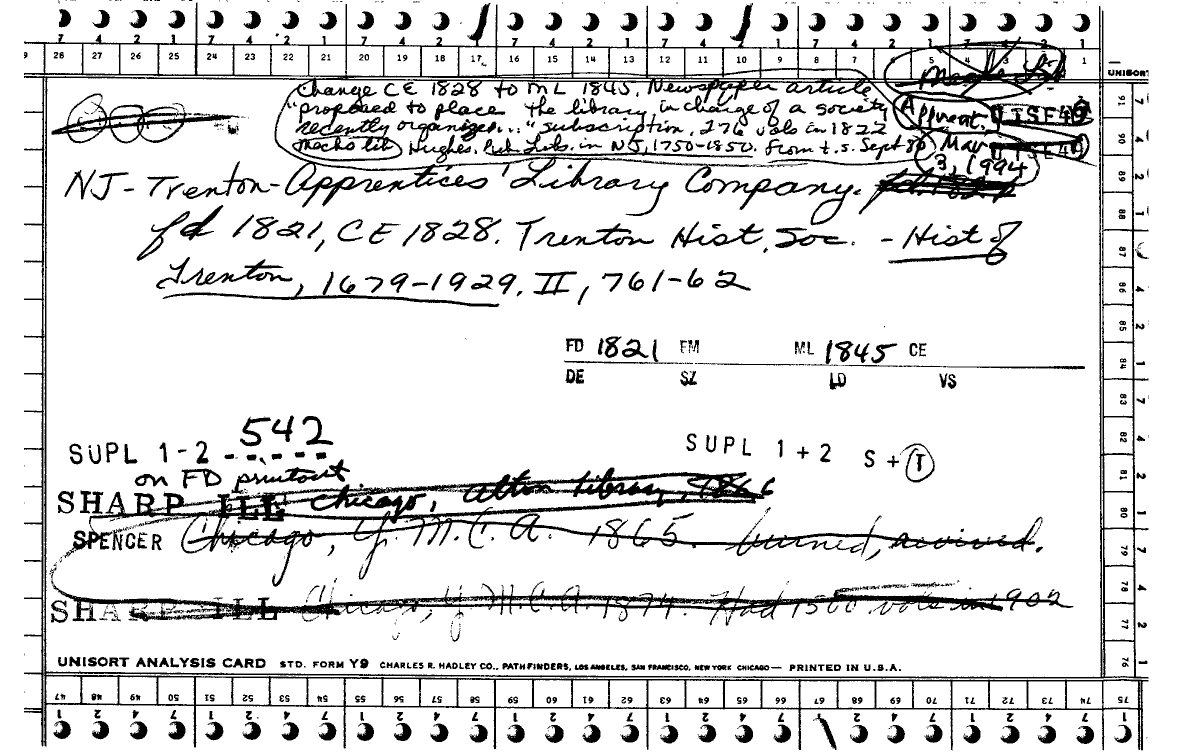 7 4 2 1 7 4 2 1 7 4 2 1 7 4 2 1 7 4 2 1
28 27 26 25 24 23 22 21 20 19 18 17 16 15 14 13 12 11 10 9 8 7 6 5 4 3 2 1
UNISORT
Change CE 1828 to ML 1845. Newspaper article
"proposed to place the library in charge of a society
recently organized..." subscription, 276 vols in 1822
Mechs lib Hughes. Pub Libs. in NJ, 1750-1850. From t.s. Sept 80
Apprent.
May
3, 1994
NJ - Trenton - Apprentices' Library Company.
fd 1821, CE 1828. Trenton Hist. Soc. - Hist of
Trenton, 1679-1929. II, 761-62
FD 1821 FM ML 1845 CE
DE SZ LD VS
SUPL 1-2 542 SUPL 1+2 S + T
on FD printout
SHARP ILL Chicago, Alton Library, 1866
SPENCER Chicago, Y.M.C.A. 1865. burned, revived.
SHARP ILL Chicago, Y.M.C.A. 1874. Had 1500 vols in 1902
UNISORT ANALYSIS CARD STD. FORM Y9 CHARLES R. HADLEY CO., PATHFINDERS, LOS ANGELES, SAN FRANCISCO, NEW YORK CHICAGO — PRINTED IN U.S.A.
91 90 89 88 87 86 85 84 83 82 81 80 79 78 77 76
7 4 2 1 7 4 2 1 7 4 2 1 7 4 2 1
47 48 49 50 51 52 53 54 55 56 57 58 59 60 61 62 63 64 65 66 67 68 69 70 71 72 73 74 75